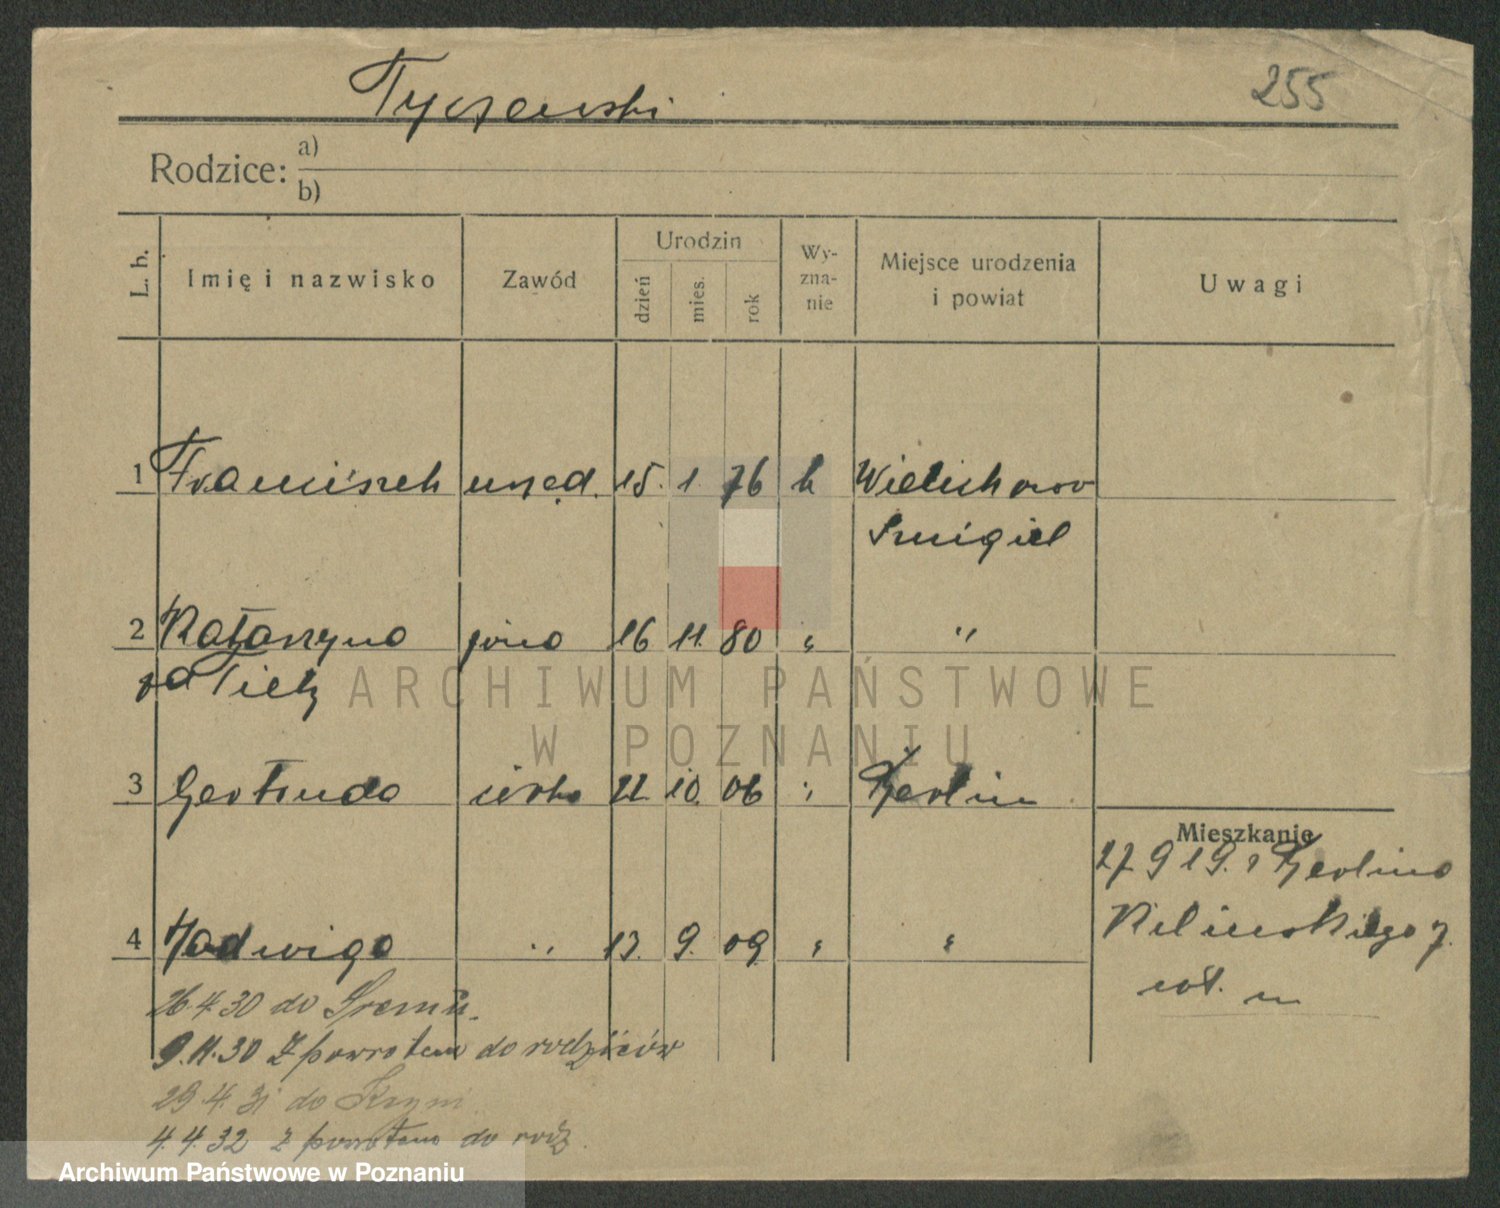 Tyczewski
255
Rodzice:
a)
b)
L. b.
Imię i nazwisko
Zawód
Urodzin
dzień
mies.
rok
Wy-
zna-
nie
Miejsce urodzenia
i powiat
Uwagi
1 Franciszek urzęd. 15. 1. 76 k Wielichowo
Śmigiel
2 Katarzyna żona 16 11. 80 " "
za Tietz
3 Gertruda córka 22 10. 06 " Berlin
Mieszkanie
27 9 19. z Berlina
Kilińskiego 7.
4 Jadwiga " 13. 9. 09. " "
wł. m
26.4.30 do Śremu.
9.11.30 z powrotem do rodziców
29.4.31 do
4.4.32 z powrotem do rodz.
ARCHIWUM PAŃSTWOWE
W POZNANIU
Archiwum Państwowe w Poznaniu